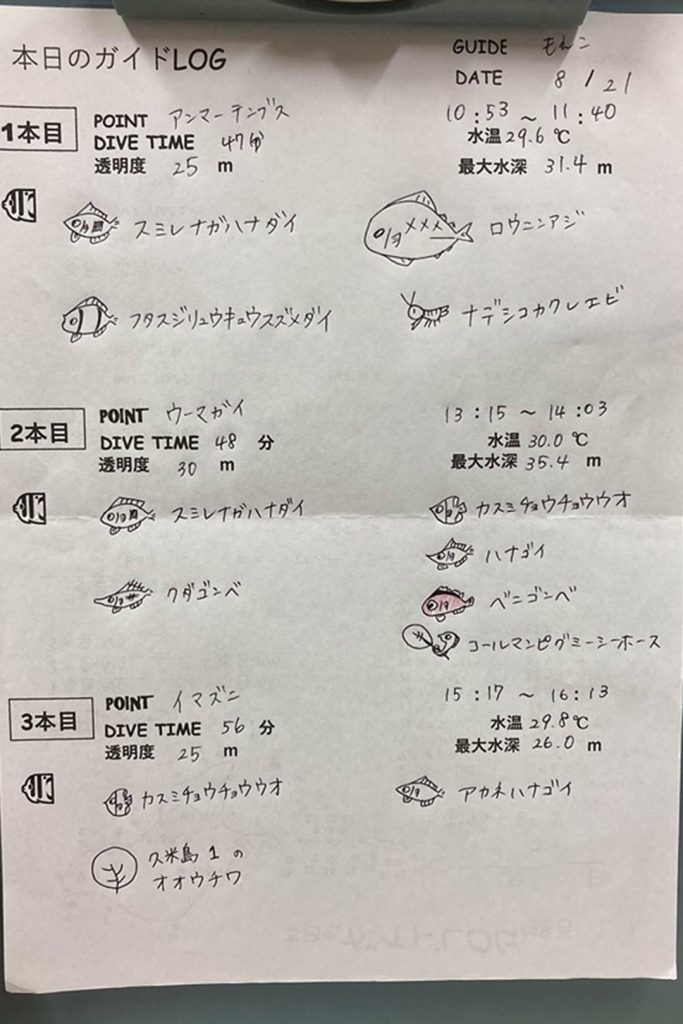 本日のガイドLOG
GUIDE もんこ
DATE 8/21
1本目
POINT アンマーテンブス
10:53 ~ 11:40
DIVE TIME 47分
水温 29.6 ℃
透明度 25 m
最大水深 31.4 m
スミレナガハナダイ
ロウニンアジ
フタスジリュウキュウスズメダイ
ナデシコカクレエビ
2本目
POINT ウーマガイ
13:15 ~ 14:03
DIVE TIME 48 分
水温 30.0 ℃
透明度 30 m
最大水深 35.4 m
スミレナガハナダイ
カスミチョウチョウウオ
ハナゴイ
クダゴンベ
ベニゴンベ
コールマンピグミーシーホース
3本目
POINT イマズニ
15:17 ~ 16:13
DIVE TIME 56 分
水温 29.8℃
透明度 25 m
最大水深 26.0 m
カスミチョウチョウウオ
アカネハナゴイ
久米島1の
オオウチワ